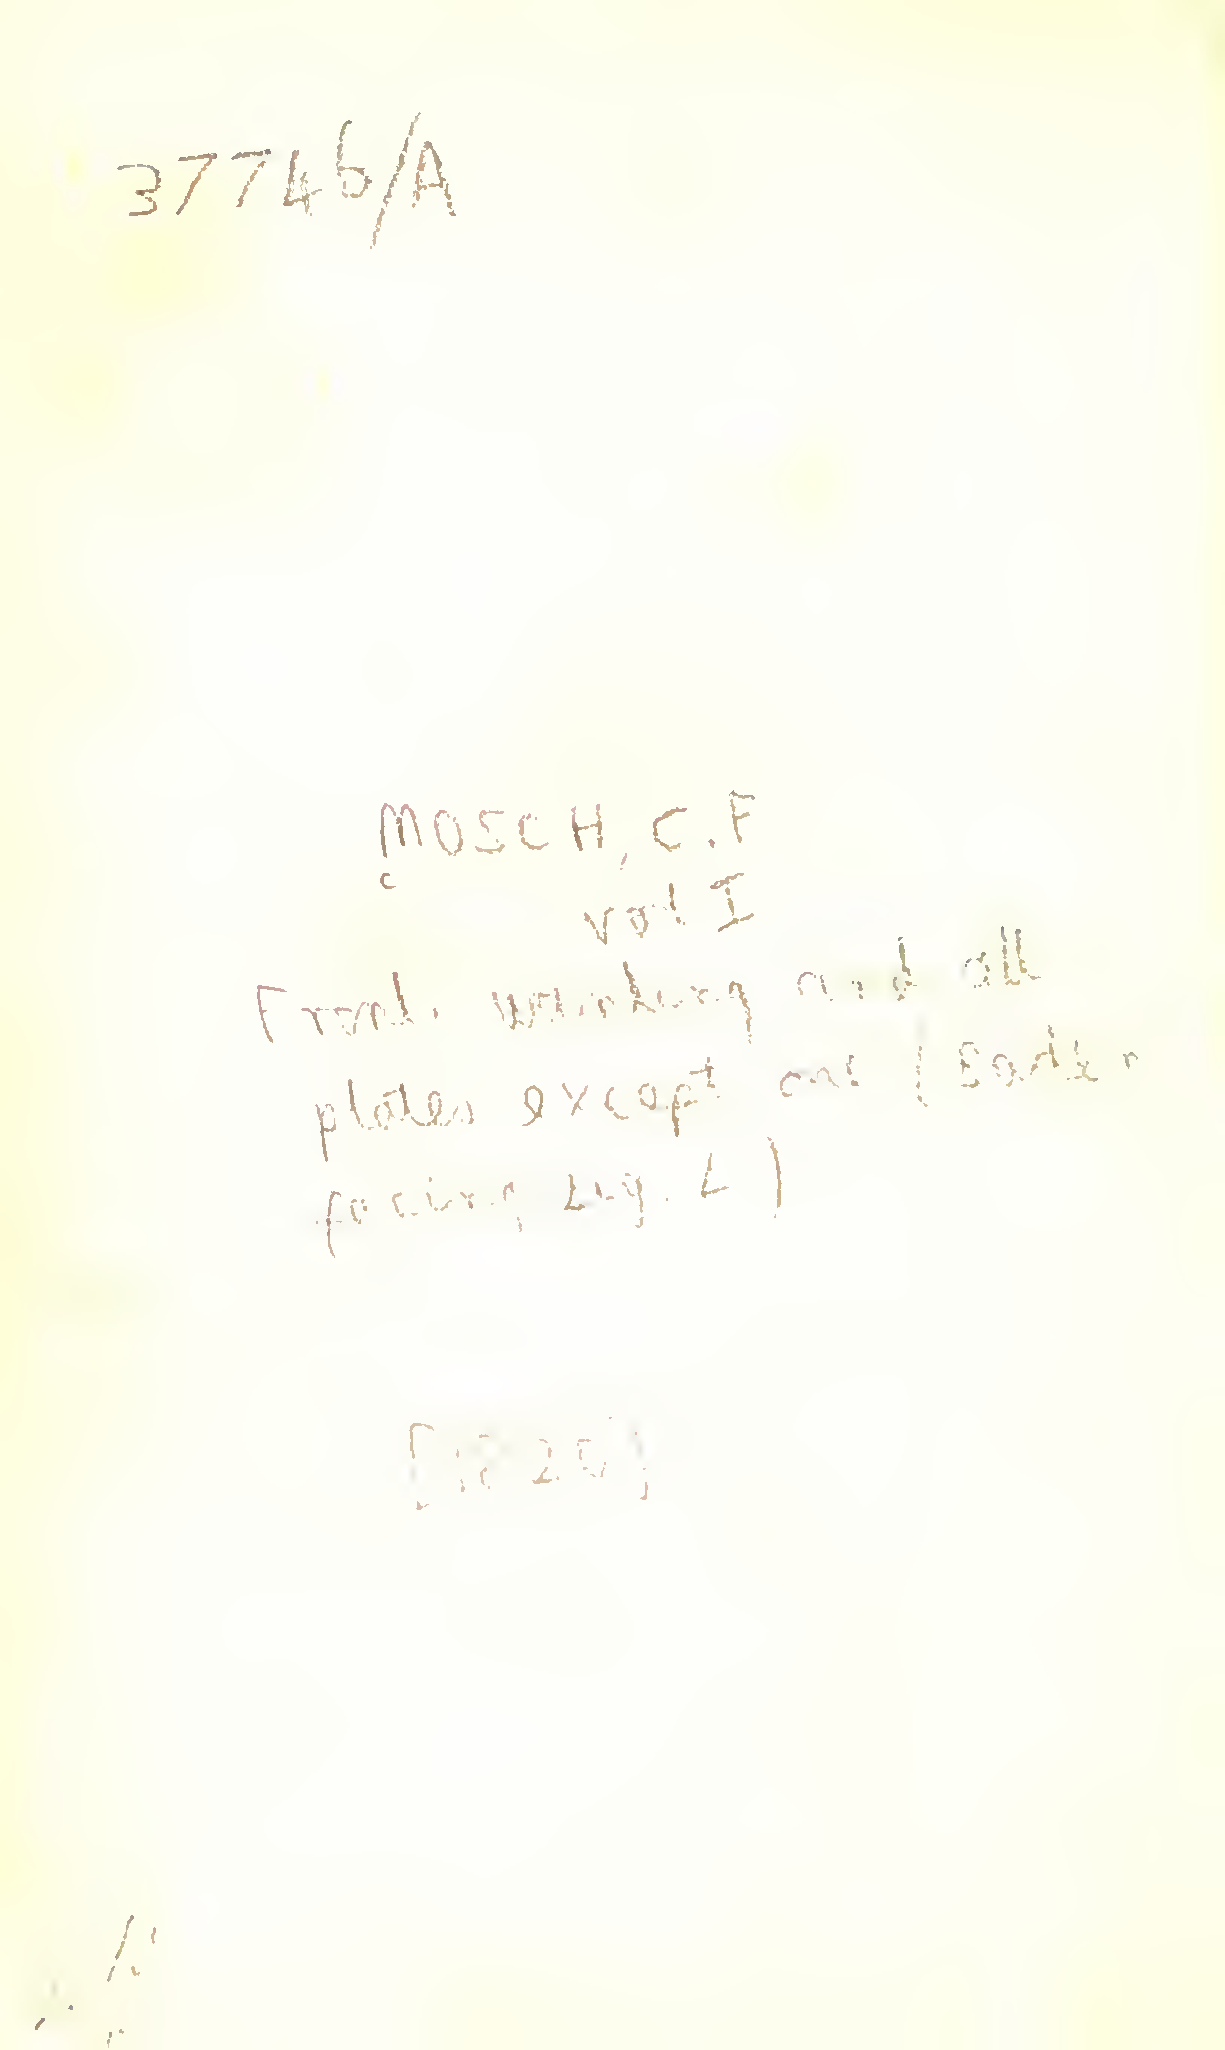 37746/A
MOSCH, C.F
c
vol I
Front. wanting and all
plates except one (Baden
facing sig. L)
[1820]